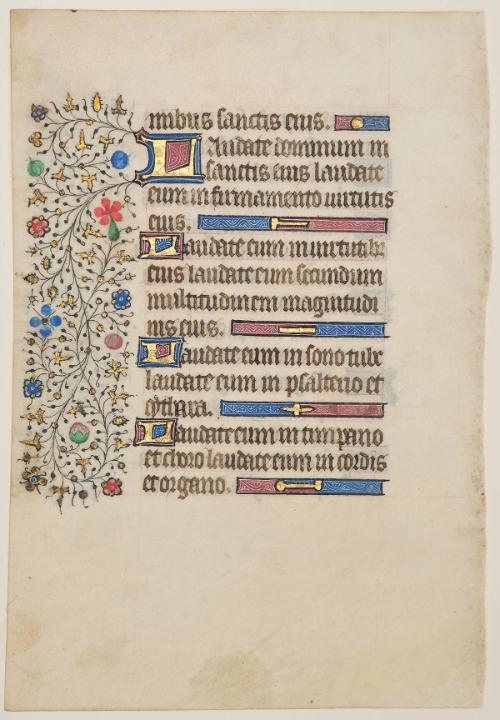 nibus sanctis eius.
Laudate dominum in
sanctis eius laudate
eum in firmamento uirtutis
eius.
Laudate eum in uirtutibꝫ
eius laudate eum secundum
multitudinem magnitudi
nis eius.
Laudate eum in sono tube
laudate eum in psalterio et
cythara.
Laudate eum in timpano
et choro laudate eum in cordis
et organo.